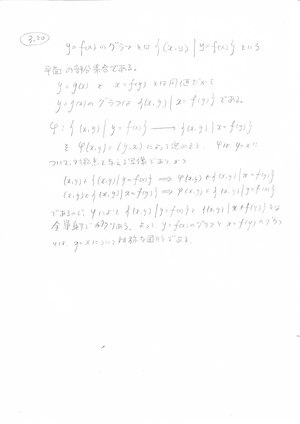 3.20
y=f(x)のグラフとは {(x,y) | y=f(x)} という
平面の部分集合である。
y=g(x) と x=f(y) とは同値だから
y=g(x)のグラフは {(x,y) | x=f(y)} である。
φ: {(x,y) | y=f(x)} → {(x,y) | x=f(y)}
を φ(x,y) = (y,x) によって定めると φは y=x に
ついて対称点を与える写像であり かつ
(x,y) ∈ {(x,y) | y=f(x)} ⟹ φ(x,y) ∈ {(x,y) | x=f(y)}
(x,y) ∈ {(x,y) | x=f(y)} ⟹ φ(x,y) ∈ {(x,y) | y=f(x)}
であるので φによって {(x,y) | y=f(x)} と {(x,y) | x=f(y)} とは
全単射で移りあう。よって y=f(x)のグラフと x=f(y)のグラフ
とは y=xについて対称な図形である。